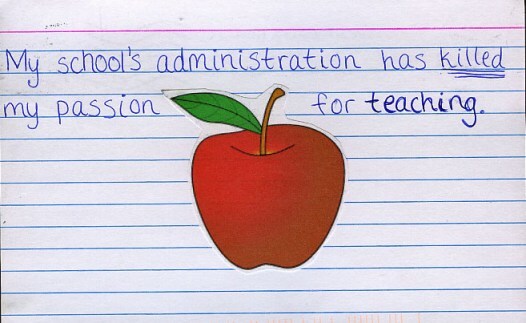 My school's administration has killed
my passion for teaching.